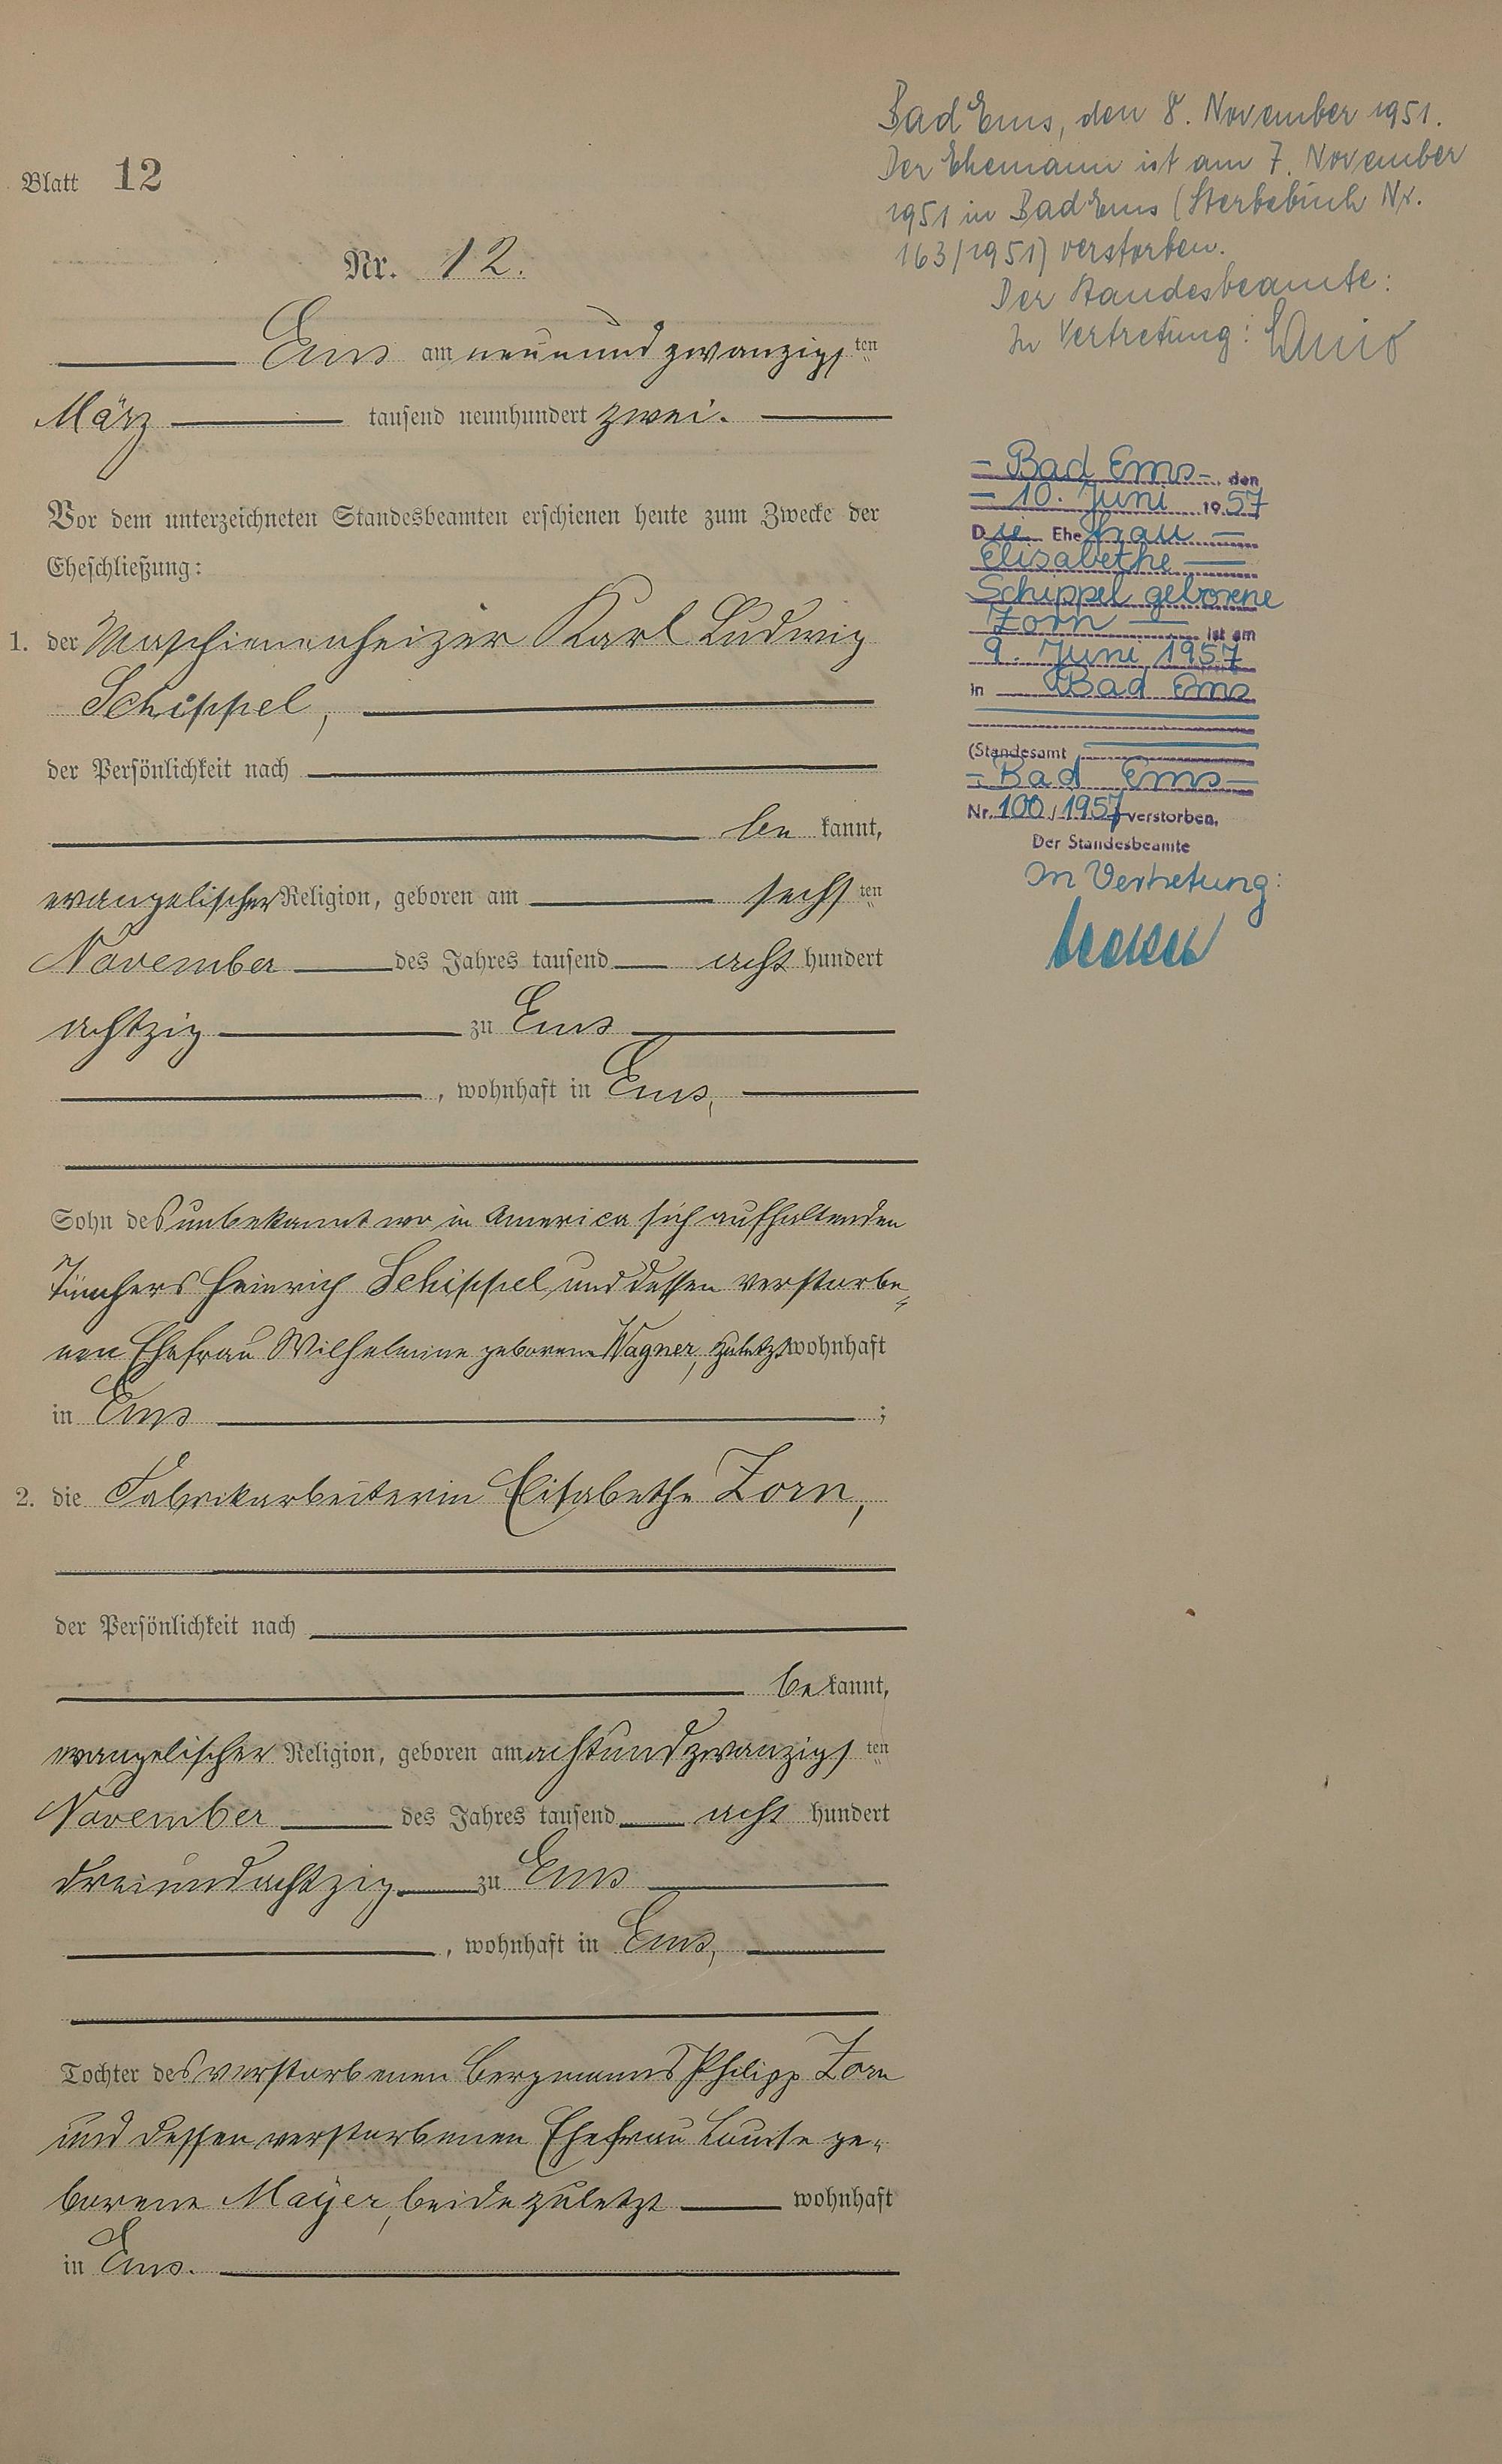 Blatt 12
Nr. 12.
Ems am neunundzwanzigsten
März tausend neunhundert zwei.
Vor dem unterzeichneten Standesbeamten erschienen heute zum Zwecke der
Eheschließung:
1. der Maschienenheizer Karl Ludwig
Schippel,
der Persönlichkeit nach
be kannt,
evangelischer Religion, geboren am sechsten
November des Jahres tausend acht hundert
achtzig zu Ems
, wohnhaft in Ems,
Sohn des unbekannt wo in America sich aufhaltenden
Tünchers Heinrich Schippel und dessen verstorbe-
nen Ehefrau Wilhelmine geborene Wagner, zuletzt wohnhaft
in Ems ;
2. die Fabrikarbeiterin Elisabethe Zorn,
der Persönlichkeit nach
be kannt,
evangelischer Religion, geboren am achtundzwanzigsten
November des Jahres tausend acht hundert
dreiundachtzig zu Ems
, wohnhaft in Ems,
Tochter des verstorbenen Bergmanns Philipp Zorn
und dessen verstorbenen Ehefrau Louise ge-
borene Mayer, beide zuletzt wohnhaft
in Ems.
Bad Ems, den 8. November 1951.
Der Ehemann ist am 7. November
1951 in Bad Ems (Sterbebuch Nr.
163/1951) verstorben.
Der Standesbeamte:
In Vertretung:
- Bad Ems -, den
- 10. Juni 1957
Die Ehefrau -
Elisabethe
Schippel geborene
Zorn - ist am
9. Juni 1957
in Bad Ems
(Standesamt
- Bad Ems -
Nr. 100/1957 verstorben.
Der Standesbeamte
In Vertretung: